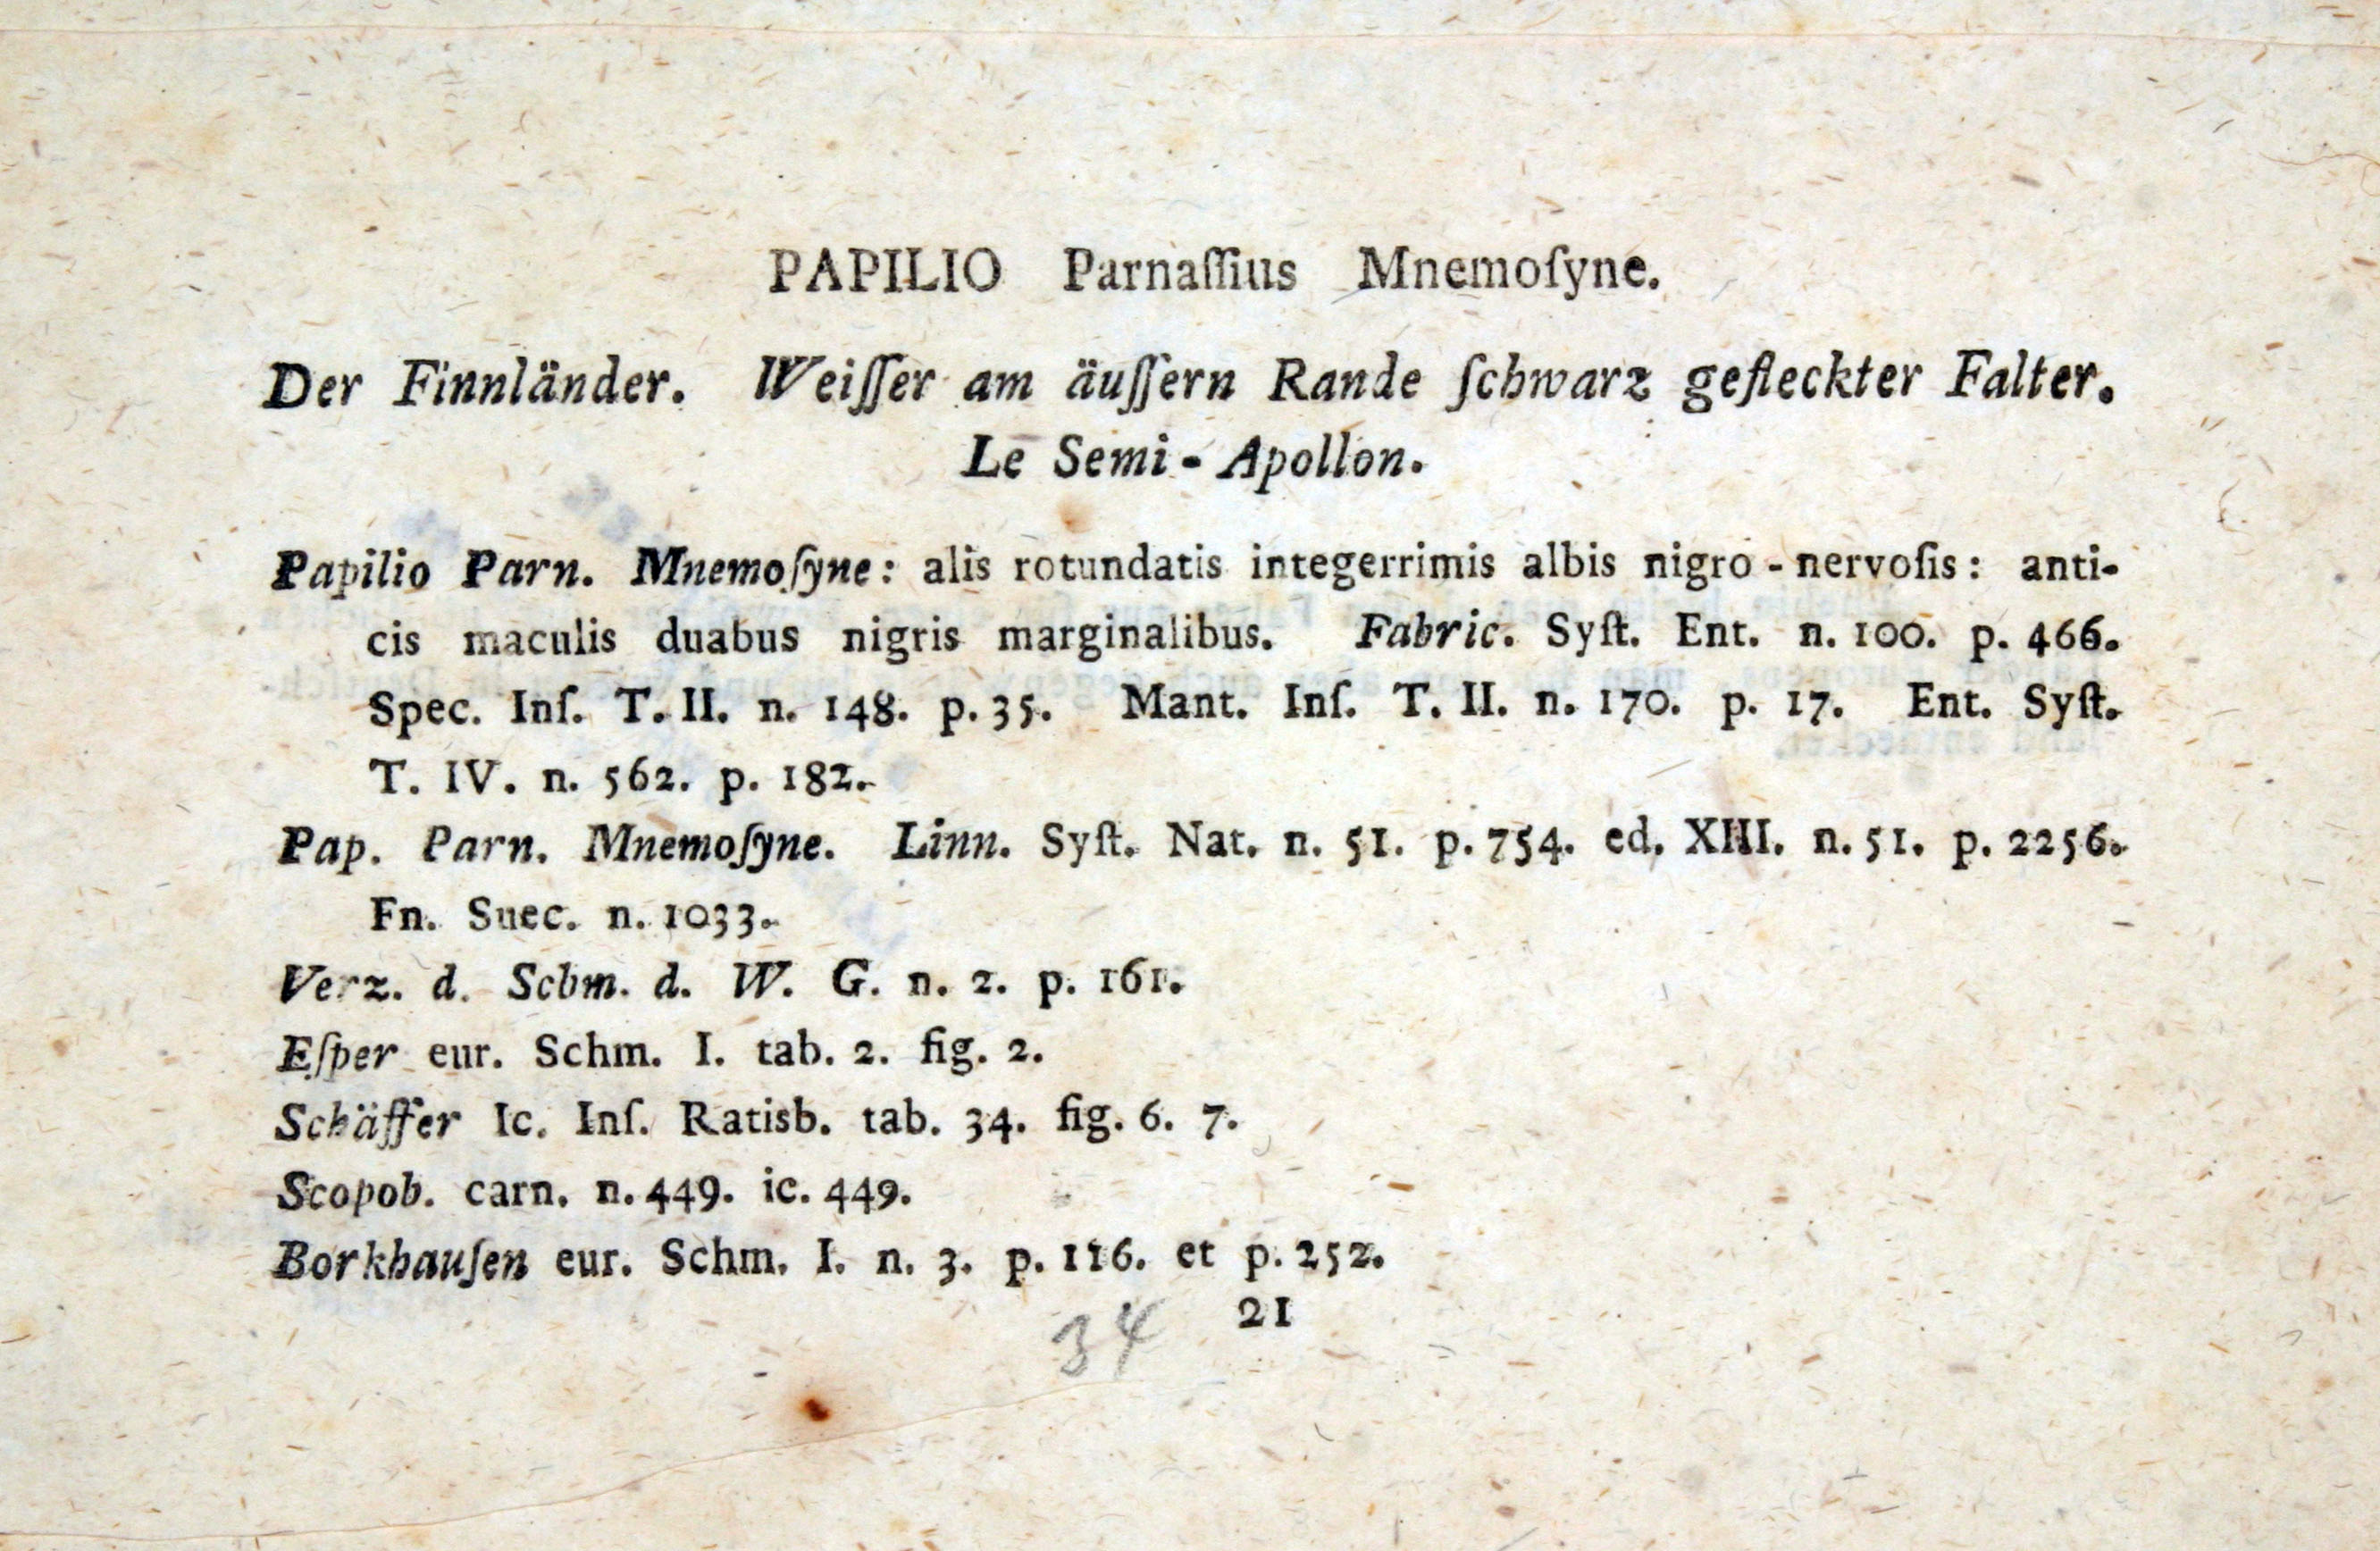 PAPILIO Parnaſſius Mnemoſyne.
Der Finnländer. Weiſſer am äuſſern Rande ſchwarz gefleckter Falter.
Le Semi-Apollon.
Papilio Parn. Mnemoſyne: alis rotundatis integerrimis albis nigro-nervoſis: anti-
cis maculis duabus nigris marginalibus. Fabric. Syſt. Ent. n. 100. p. 466.
Spec. Inſ. T. II. n. 148. p. 35. Mant. Inſ. T. II. n. 170. p. 17. Ent. Syſt.
T. IV. n. 562. p. 182.
Pap. Parn. Mnemoſyne. Linn. Syſt. Nat. n. 51. p. 754. ed. XIII. n. 51. p. 2256.
Fn. Suec. n. 1033.
Verz. d. Schm. d. W. G. n. 2. p. 161.
Eſper eur. Schm. I. tab. 2. fig. 2.
Schäffer Ic. Inſ. Ratisb. tab. 34. fig. 6. 7.
Scopoh. carn. n. 449. ic. 449.
Borkhauſen eur. Schm. I. n. 3. p. 116. et p. 252.
21
34